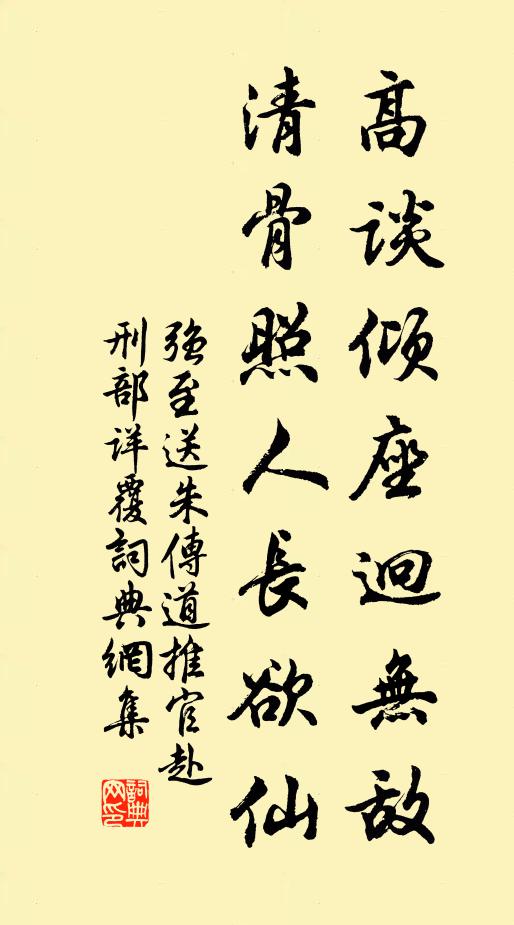 高談傾座迥無敌
清骨照人長欲仙
強至送朱傳道推官赴
刑部详覆詞典網集
詞典网印